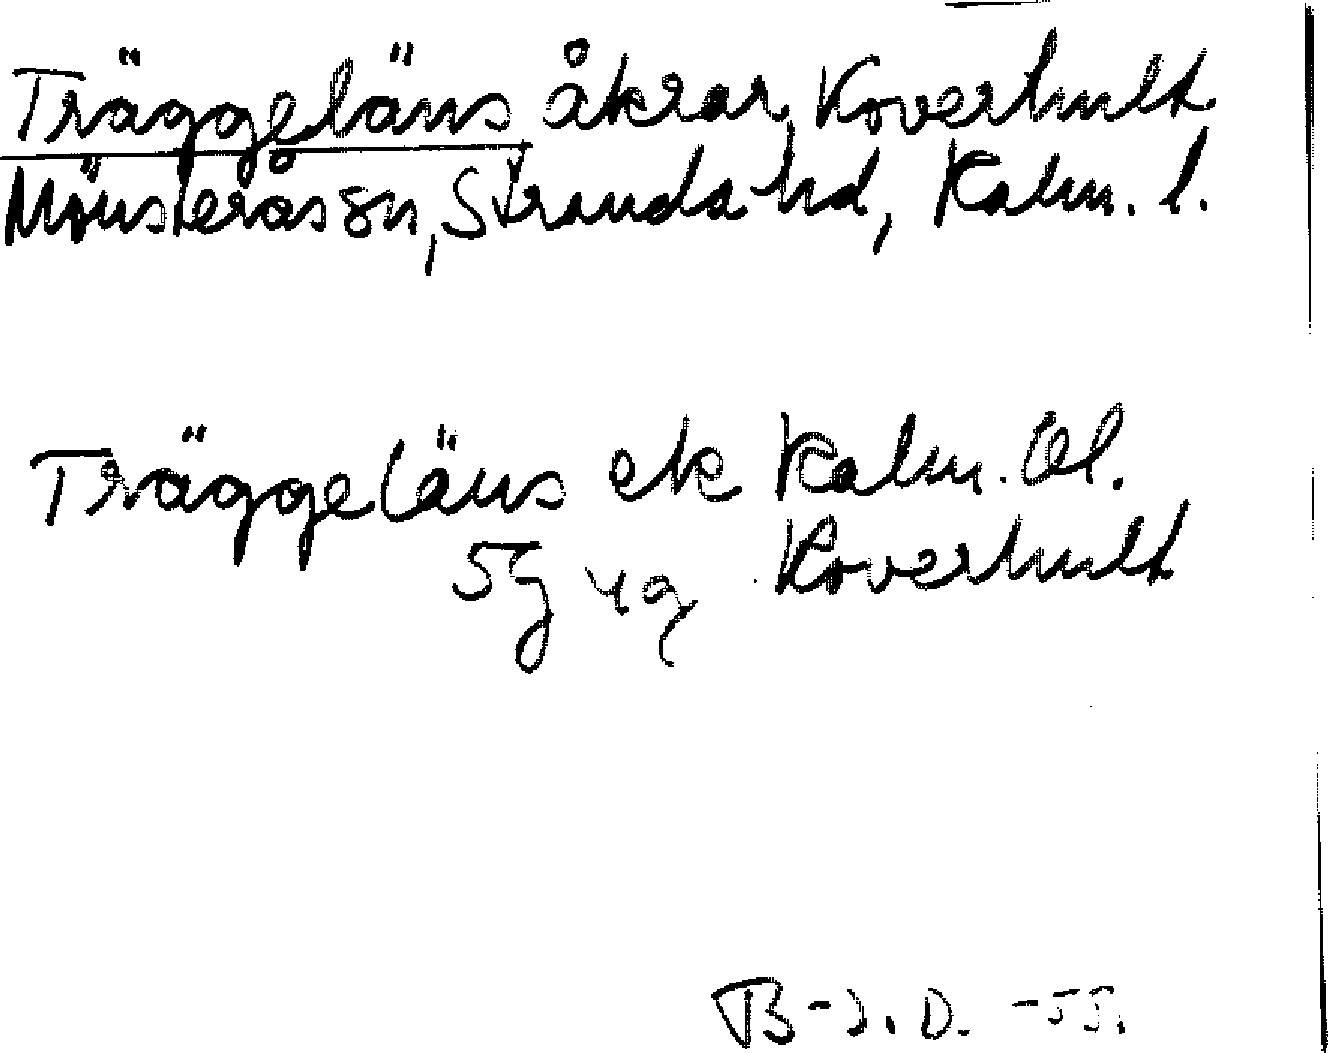 Träggeläns åkrar, Koverhult
Mönsterås sn, Stranda hd, Kalm. l.
Träggeläns ek Kalm. Öl.
5g 4g Koverhult
B-J. D. -55.